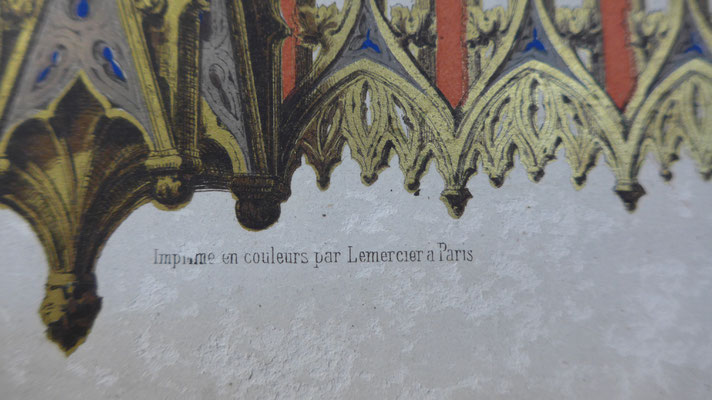 Imprimé en couleurs par Lemercier a Paris